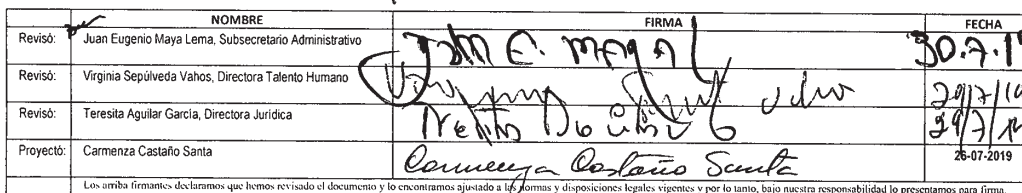 NOMBRE FIRMA FECHA
Revisó: Juan Eugenio Maya Lema, Subsecretario Administrativo Juan E. Maya L 30.7.19
Revisó: Virginia Sepúlveda Vahos, Directora Talento Humano 29/7/19
Revisó: Teresita Aguilar García, Directora Jurídica 29/7/19
Proyectó: Carmenza Castaño Santa Carmenza Castaño Santa 26-07-2019
Los arriba firmantes declaramos que hemos revisado el documento y lo encontramos ajustado a las normas y disposiciones legales vigentes y por lo tanto, bajo nuestra responsabilidad lo presentamos para firma.